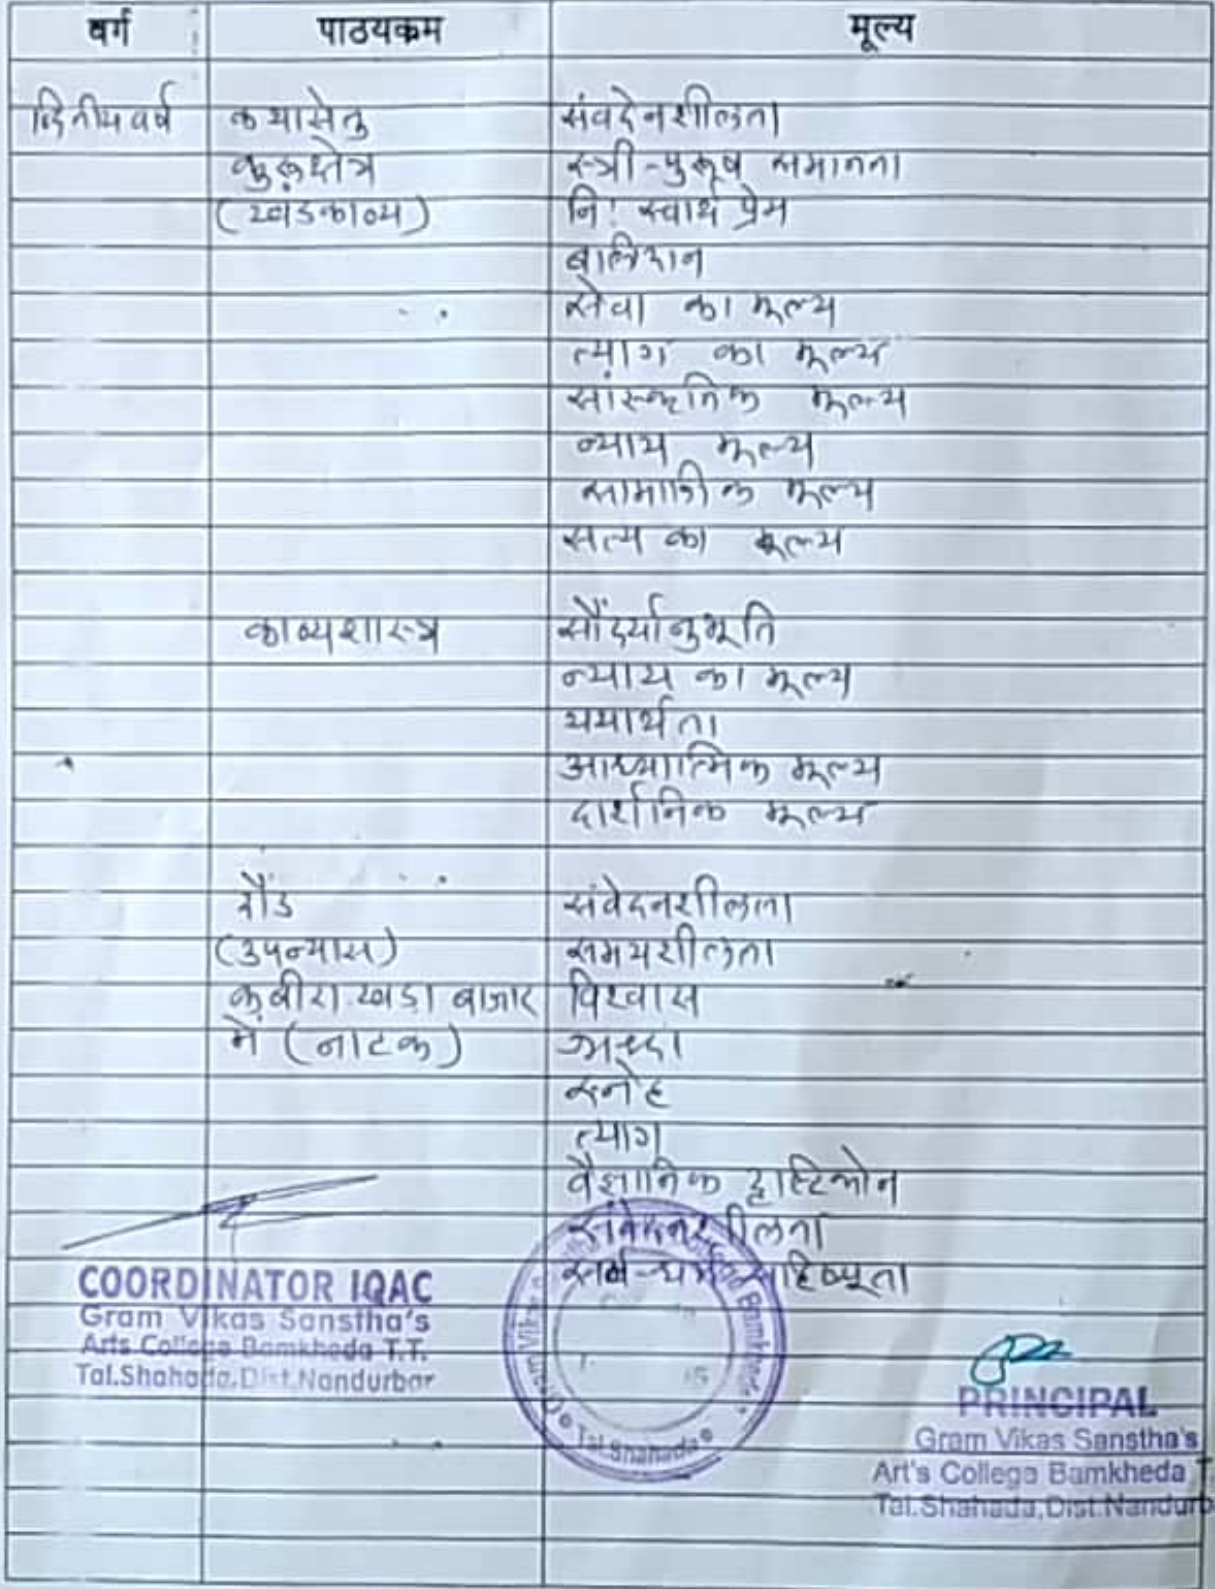 वर्ग पाठयकम मूल्य
द्वितीय वर्ष कथासेतु संवदेनशीलता
कुरूक्षेत्र स्त्री-पुरूष समानता
(खंडकाव्य) नि: स्वार्थ प्रेम
बलिदान
सेवा का मूल्य
त्याग का मूल्य
सांस्कृतिक मूल्य
न्याय मूल्य
सामाजिक मूल्य
सत्य का मूल्य
काव्यशास्त्र सौंदर्यानुभूति
न्याय का मूल्य
यथार्थता
आध्यात्मिक मूल्य
दार्शनिक मूल्य
संवेदनशीलता
(उपन्यास) समयशीलता
कबीरा खडा बाजार विश्वास
में (नाटक) श्रध्दा
स्नेह
त्याग
वैज्ञानिक दृष्टिकोन
संवेदनशीलता
सर्व-धर्म सहिष्णूता
COORDINATOR IQAC
Gram Vikas Sanstha's
Arts College Bamkheda T.T.
Tal.Shahada, Dist.Nandurbar
Bamkheda
Tal.Shahada
PRINCIPAL
Gram Vikas Sanstha's
Art's College Bamkheda T
Tal.Shahada, Dist.Nandurb